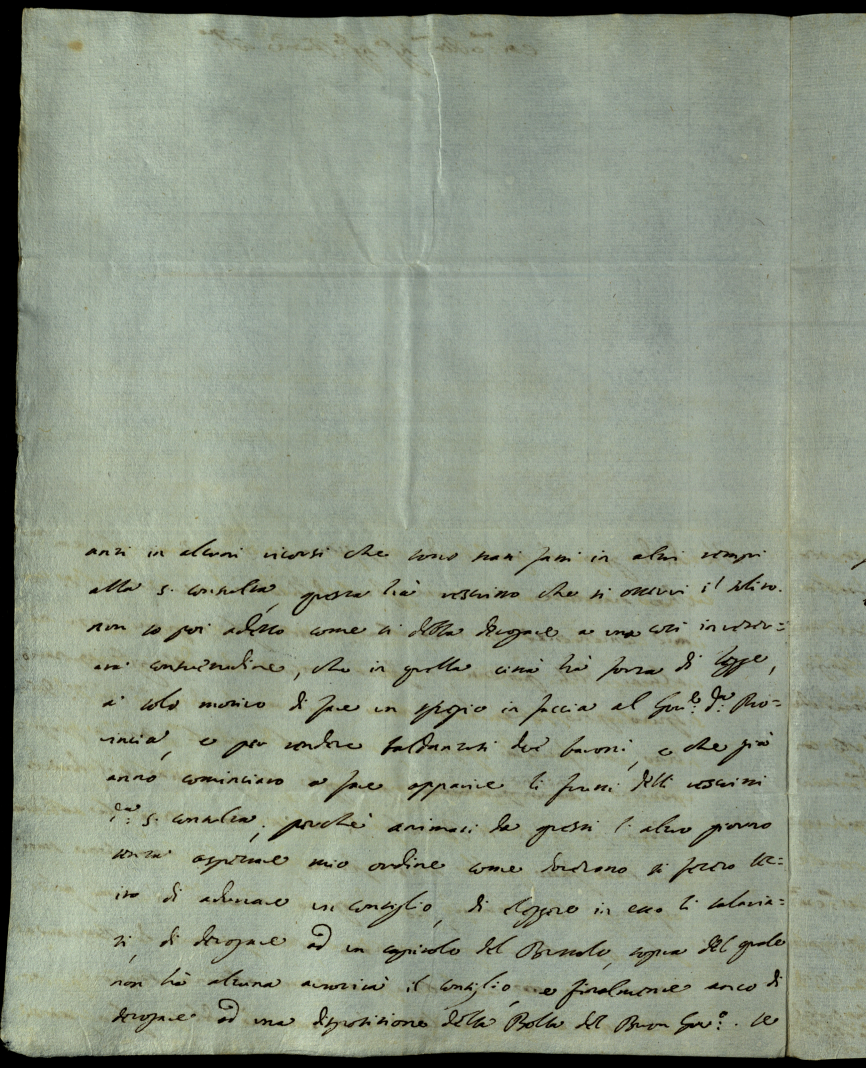 anzi in alcuni ricorsi che sono stati fatti in altri tempi
alla S. Consulta, questa hà rescritto che si osservi il solito.
non so poi adesso come si debba derogare a una così invener=
ata consuetudine, che in quella città hà forza di legge,
a solo motivo di fare un spregio in faccia al Gov.e d.a Pro=
vincia, e per rendere baldanzosi due baroni, e che già
anno cominciato a fare apparire li frutti delli rescritti
d.a S. Consulta; perchè animati da questi l'altro giorno
senza aspettare mio ordine come dovevano si fecero le=
cito di adunare un consiglio, di eleggere in esso li salaria=
ti, di derogare ad un capitolo del Bussolo, sopra del quale
non hà alcuna autorità il consiglio, e finalmente anco di
derogare ad una disposizione della Bolla del Buon Gov.o. Le